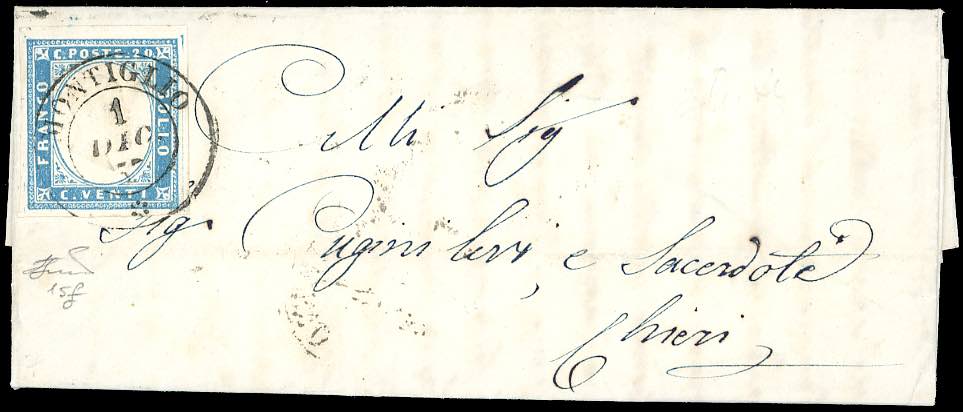 C. POSTE. 20
FRANCO
BOLLO
C. VENTI
MONTIGLIO
1
DIC
Alli Sig
Sig. Cugini Levi e Sacerdote
Chieri
15f